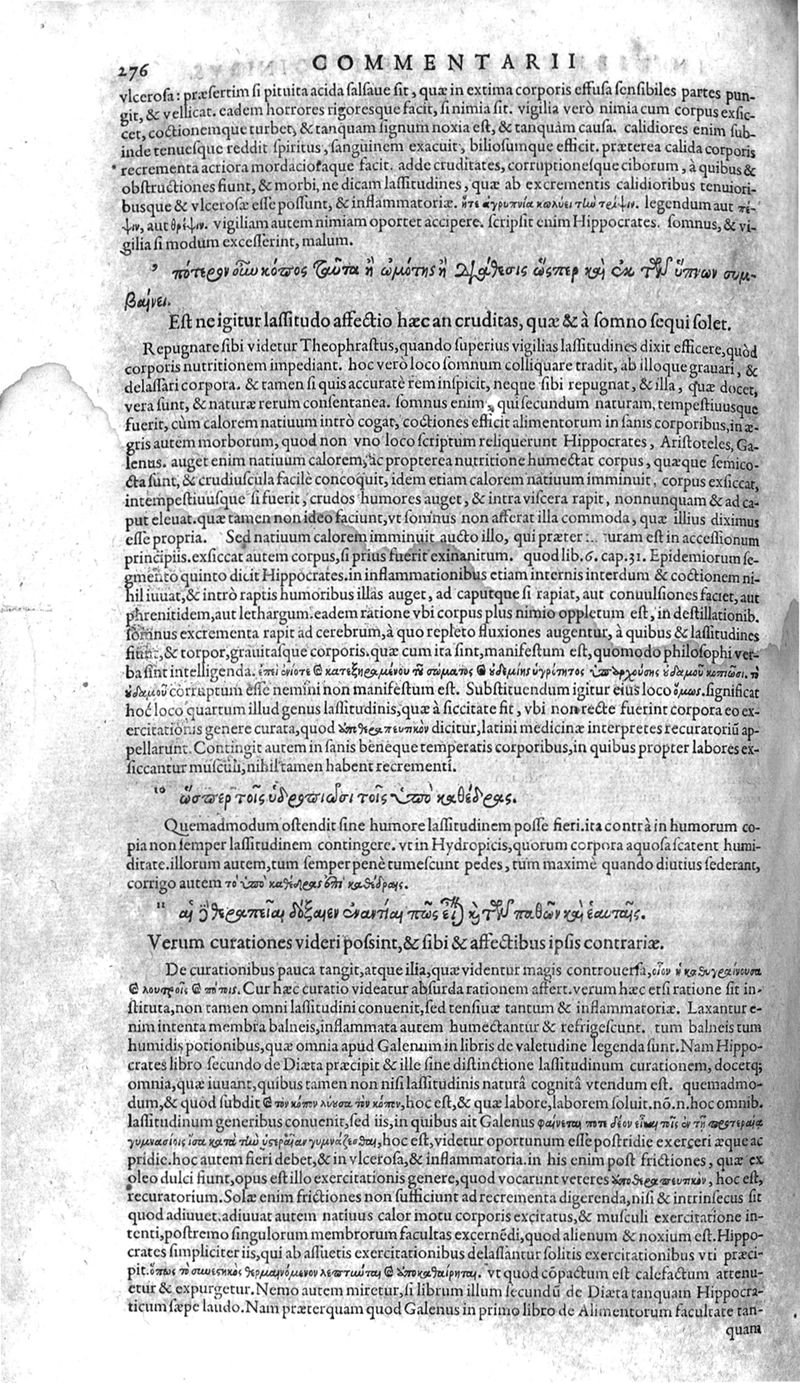 276
COMMENTARII
vlcerosa: præsertim si pituita acida salsaue sit, quæ in extima corporis effusa sensibiles partes pun-
git, & vellicat. eadem horrores rigoresque facit, si nimia sit. vigilia verò nimia cum corpus exsic-
cet, coctionemque turbet, & tanquam signum noxia est, & tanquàm causa. calidiores enim sub-
inde tenuesque reddit spiritus, sanguinem exacuit, biliosumque efficit. præterea calida corporis
recrementa acriora mordaciosaque facit. adde cruditates, corruptionesque ciborum, à quibus &
obstructiones fiunt, & morbi, ne dicam lassitudines, quæ ab excrementis calidioribus tenuiori-
busque & vlcerosæ esse possunt, & inflammatoriæ. ἥτε ἀγρυπνία κωλύει τὴν τρίψιν. legendum aut πέ-
ψιν, aut θρίψιν. vigiliam autem nimiam oportet accipere. scripsit enim Hippocrates. somnus, & vi-
gilia si modum excesserint, malum.
9 πότερον οὖν κόπος ταῦτα ἢ ὠμότης ἢ διάθεσις ὥσπερ καὶ ἐκ τῶν ὕπνων συμ-
βαίνει.
Est ne igitur lassitudo affectio hæc an cruditas, quæ & à somno sequi solet.
Repugnare sibi videtur Theophrastus, quando superius vigilias lassitudines dixit efficere, quòd
corporis nutritionem impediant. hoc verò loco somnum colliquare tradit, ab illoque grauari, &
delassari corpora. & tamen si quis accuratè rem inspicit, neque sibi repugnat, & illa, quæ docet,
vera sunt, & naturæ rerum consentanea. somnus enim, qui secundum naturam, tempestiuusque
fuerit, cùm calorem natiuum intrò cogat, coctiones efficit alimentorum in sanis corporibus, in æ-
gris autem morborum, quod non vno loco scriptum reliquerunt Hippocrates, Aristoteles, Ga-
lenus. auget enim natiuum calorem, ac propterea nutritione humectat corpus, quæque semico-
cta sunt, & crudiuscula facilè concoquit, idem etiam calorem natiuum imminuit, corpus exsiccat,
intempestiuusque si fuerit, crudos humores auget, & intra viscera rapit, nonnunquam & ad ca-
put eleuat. quæ tamen non ideo faciunt, vt somnus non afferat illa commoda, quæ illius diximus
esse propria. Sed natiuum calorem imminuit aucto illo, qui præter uram est in accessionum
principiis. exsiccat autem corpus, si prius fuerit exinanitum. quod lib. 6. cap. 31. Epidemiorum se-
gmento quinto dicit Hippocrates. in inflammationibus etiam internis interdum & coctionem ni-
hil iuuat, & intrò raptis humoribus illas auget, ad caputque si rapiat, aut conuulsiones faciet, aut
phrenitidem, aut lethargum. eadem ratione vbi corpus plus nimio oppletum est, in destillationib.
somnus excrementa rapit ad cerebrum, à quo repleto fluxiones augentur, à quibus & lassitudines
fiunt, & torpor, grauitasque corporis. quæ cum ita sint, manifestum est, quomodo philosophi ver-
ba sint intelligenda. ἐπεὶ ἐνίοτε καὶ κατεξηραμένου τοῦ σώματος καὶ οὐδεμιῆς ὑγρότητος ὑπαρχούσης οὐδαμοῦ κοπιῶσι. τὸ
οὐδαμοῦ corruptum esse nemini non manifestum est. Substituendum igitur eius loco ὅμως. significat
hoc loco quartum illud genus lassitudinis, quæ à siccitate fit, vbi non recte fuerint corpora eo ex-
ercitationis genere curata, quod ἀποθεραπευτικὸν dicitur, latini medicinæ interpretes recuratoriū ap-
pellarunt. Contingit autem in sanis beneque temperatis corporibus, in quibus propter labores ex-
siccantur musculi, nihil tamen habent recrementi.
10 ὥσπερ τοῖς ὑδρωπιῶσι τοῖς ὑπὸ καθέδρας.
Quemadmodum ostendit sine humore lassitudinem posse fieri. ita contrà in humorum co-
pia non semper lassitudinem contingere. vt in Hydropicis, quorum corpora aquosa scatent humi-
ditate. illorum autem, tum semper penè tumescunt pedes, tùm maximè quando diutius sederant,
corrigo autem τὸ ὑπὸ καθέδρας ἐπὶ καθέδρας.
11 αἱ δὲ θεραπεῖαι δόξαιεν ἐναντίαι πως εἶναι καὶ τῶν παθῶν καὶ ἑαυταῖς.
Verum curationes videri possint, & sibi & affectibus ipsis contrariæ.
De curationibus pauca tangit, atque ilia, quæ videntur magis controuersa, οἷον ἡ καθυγραίνουσα
καὶ λουτροῖς καὶ ποτοῖς. Cur hæc curatio videatur absurda rationem affert. verum hæc etsi ratione sit in-
stituta, non tamen omni lassitudini conuenit, sed tensiuæ tantum & inflammatoriæ. Laxantur e-
nim intenta membra balneis, inflammata autem humectantur & refrigescunt. tum balneis tum
humidis potionibus, quæ omnia apud Galenum in libris de valetudine legenda sunt. Nam Hippo-
crates libro secundo de Diæta præcipit & ille sine distinctione lassitudinum curationem, docetq;
omnia, quæ iuuant, quibus tamen non nisi lassitudinis naturâ cognitâ vtendum est. quemadmo-
dum, & quod subdit καὶ τὸν κόπον λύουσα τὸν κόπον, hoc est, & quæ labore, laborem soluit. nō. n. hoc omnib.
lassitudinum generibus conuenit, sed iis, in quibus ait Galenus φαίνεται ποτε δέον εἶναι τοῖς ἐν τῇ προτεραίᾳ
γυμνασίοις ἴσα κατὰ τὴν ὑστεραίαν γυμνάζεσθαι, hoc est, videtur oportunum esse postridie exerceri æque ac
pridie. hoc autem fieri debet, & in vlcerosa, & inflammatoria. in his enim post frictiones, quæ ex
oleo dulci fiunt, opus est illo exercitationis genere, quod vocarunt veteres ἀποθεραπευτικὸν, hoc est,
recuratorium. Solæ enim frictiones non sufficiunt ad recrementa digerenda, nisi & intrinsecus sit
quod adiuuet. adiuuat autem natiuus calor motu corporis excitatus, & musculi exercitatione in-
tenti, postremo singulorum membrorum facultas excernēdi, quod alienum & noxium est. Hippo-
crates simpliciter iis, qui ab assuetis exercitationibus delassantur solitis exercitationibus vti præci-
pit. ὅπως τὸ συνεστηκὸς θερμαινόμενον λεπτωτῇ καὶ ἀποκαθαίρηται. vt quod cōpactum est calefactum attenu-
etur & expurgetur. Nemo autem miretur, si librum illum secundū de Diæta tanquam Hippocra-
ticum sæpe laudo. Nam præterquam quod Galenus in primo libro de Alimentorum facultate tan-
quam